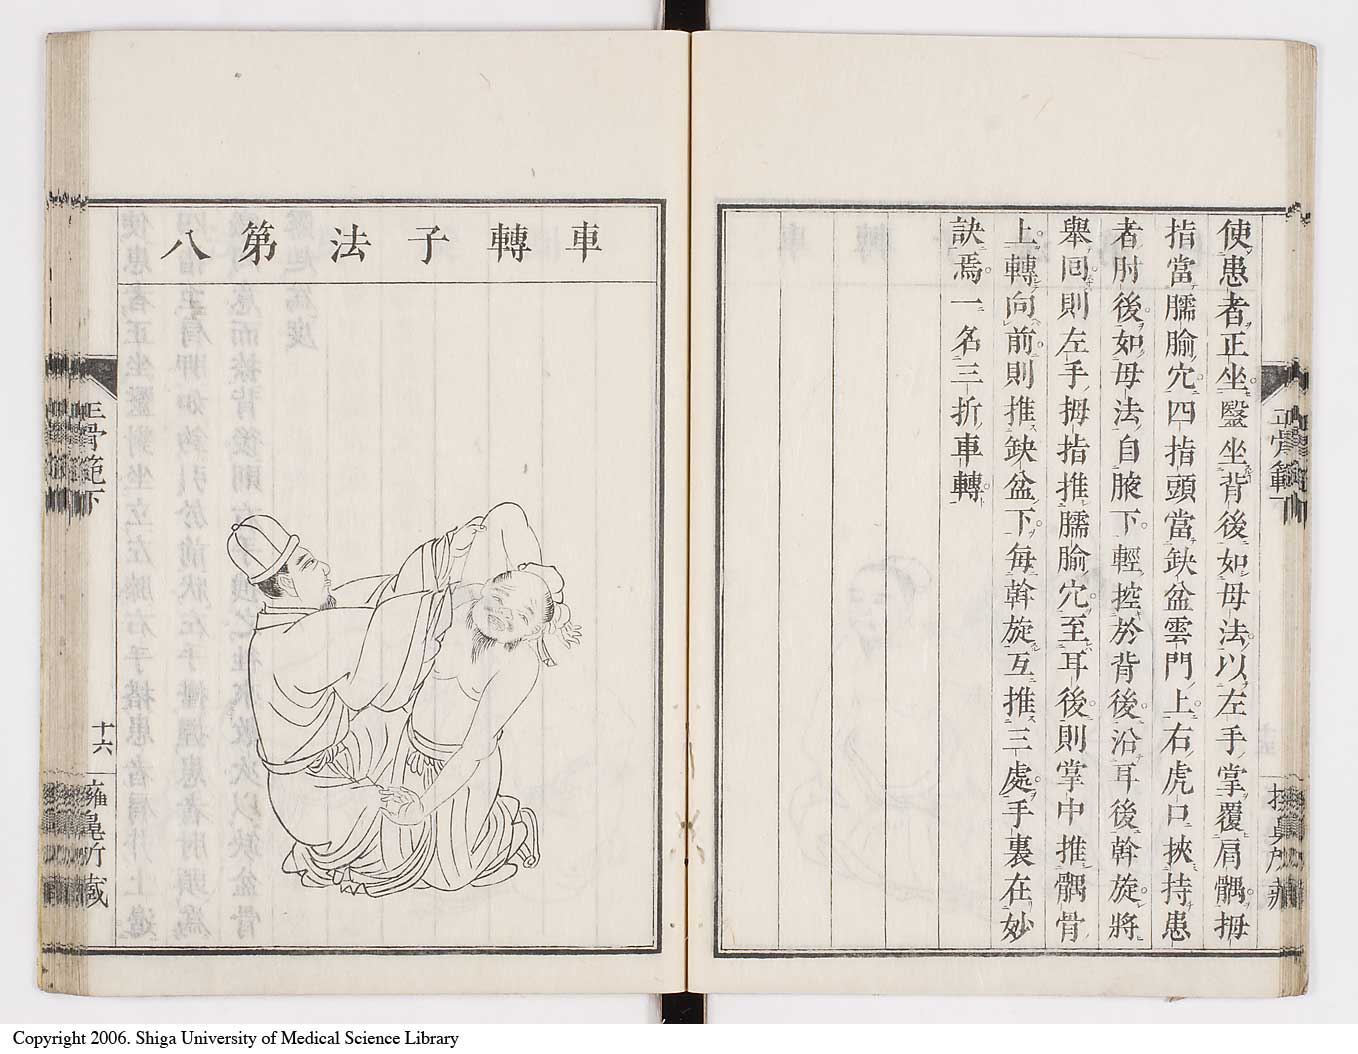 使患者正坐毉坐背後如母法以左手掌覆肩髃拇
指當臑腧穴四指頭當缺盆雲門上右虎口挾持患
者肘後如母法自腋下輕控於背後沿耳後斡旋將
舉回則左手拇指推臑腧穴至耳後則掌中推髃骨
上轉向前則推缺盆下每斡旋互推三處手裏在妙
訣焉一名三折車轉
正骨範下
車轉子法第八
正骨範下
十六
Copyright 2006. Shiga University of Medical Science Library